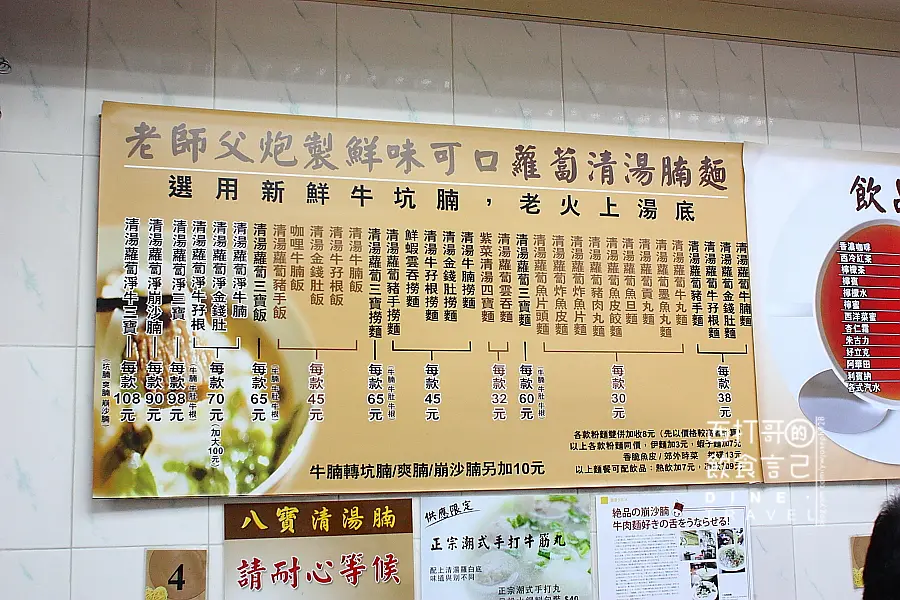 老師父炮製鮮味可口蘿蔔清湯腩麵
選用新鮮牛坑腩，老火上湯底
清湯蘿蔔牛腩麵
清湯蘿蔔金錢肚麵
清湯蘿蔔牛孖根麵
清湯蘿蔔豬手麵
每款38元
清湯蘿蔔牛丸麵
清湯蘿蔔墨魚丸麵
清湯蘿蔔貢丸麵
清湯蘿蔔魚旦麵
清湯蘿蔔魚皮餃麵
清湯蘿蔔豬肉丸麵
清湯蘿蔔炸魚片麵
清湯蘿蔔炸魚皮麵
清湯蘿蔔魚片頭麵
每款30元
清湯蘿蔔三寶麵
(牛腩 牛肚 牛根)
每款60元
清湯蘿蔔雲吞麵
紫菜清湯四寶麵
每款32元
清湯牛腩撈麵
清湯金錢肚撈麵
清湯牛孖根撈麵
鮮蝦雲吞撈麵
清湯蘿蔔豬手撈麵
每款45元
清湯蘿蔔三寶撈麵
(牛腩 牛肚 牛根)
每款65元
清湯牛腩飯
清湯牛孖根飯
清湯金錢肚飯
咖哩牛腩飯
清湯蘿蔔豬手飯
每款45元
清湯蘿蔔三寶飯
(牛腩 牛肚 牛根)
每款65元
清湯蘿蔔淨牛腩
清湯蘿蔔淨金錢肚
清湯蘿蔔淨牛孖根
每款70元
(加大100元)
清湯蘿蔔淨三寶
(牛腩 牛肚 牛根)
每款98元
清湯蘿蔔淨崩沙腩
每款90元
清湯蘿蔔淨牛三寶
(坑腩 爽腩 崩沙腩)
每款108元
牛腩轉坑腩/爽腩/崩沙腩另加10元
各款粉麵雙併加收8元（先以價格較高者計算）
以上各款粉麵同價，伊麵加3元，蝦子麵加7元
香脆魚皮/郊外時菜 每碟13元
以上麵餐可配飲品：熱飲加7元，凍飲加9元
飲品
香濃咖啡
西冷紅茶
檸檬茶
檸蜜
檸檬水
檸蜜
西洋菜蜜
杏仁霜
朱古力
好立克
阿華田
利賓納
各式汽水
百打哥的
飲食言己
DINE.
TRAVEL
4
八寶清湯腩
請耐心等候
供應限定
正宗潮式手打牛筋丸
配上清湯蘿白底
味道與別不同
正宗潮式手打丸
絶品の崩沙腩
牛肉麺好きの舌をうならせる!